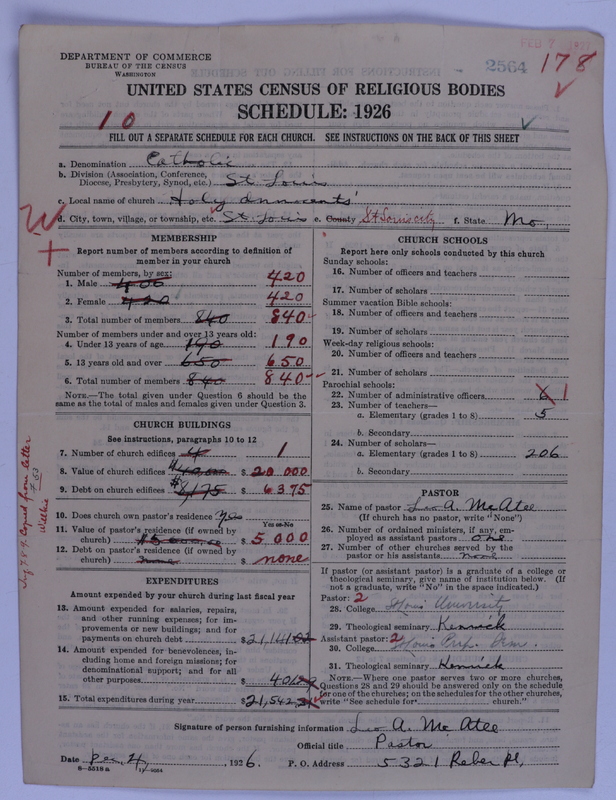 FEB 7 1927
2564 178
DEPARTMENT OF COMMERCE
BUREAU OF THE CENSUS
WASHINGTON
UNITED STATES CENSUS OF RELIGIOUS BODIES
SCHEDULE: 1926
10
FILL OUT A SEPARATE SCHEDULE FOR EACH CHURCH. SEE INSTRUCTIONS ON THE BACK OF THIS SHEET
a. Denomination Catholic
b. Division (Association, Conference, Diocese, Presbytery, Synod, etc.) St. Louis
c. Local name of church Holy Innocents'
d. City, town, village, or township, etc. St. Louis e. County St Louis city f. State Mo.
MEMBERSHIP
Report number of members according to definition of
member in your church
Number of members, by sex:
1. Male 400 420
2. Female 420 420
3. Total number of members 840 840
Number of members under and over 13 years old:
4. Under 13 years of age 190 190
5. 13 years old and over 650 650
6. Total number of members 840 840
NOTE.—The total given under Question 6 should be
same as the total of males and females given under Question 3.
CHURCH BUILDINGS
See instructions, paragraphs 10 to 12
7. Number of church edifices 1
8. Value of church edifices $ 20 000
9. Debt on church edifices $8,175 $ 6375
10. Does church own pastor's residence? Yes
Yes or No
11. Value of pastor's residence (if owned by
church) $ 5 000
12. Debt on pastor's residence (if owned by
church) none $ none
EXPENDITURES
Amount expended by your church during last fiscal year
13. Amount expended for salaries, repairs,
and other running expenses; for im-
provements or new buildings; and for
payments on church debt $21,141
14. Amount expended for benevolences, in-
cluding home and foreign missions; for
denominational support; and for all
other purposes $ 401
15. Total expenditures during year $21,542
CHURCH SCHOOLS
Report here only schools conducted by this church
Sunday schools:
16. Number of officers and teachers
17. Number of scholars
Summer vacation Bible schools:
18. Number of officers and teachers
19. Number of scholars
Week-day religious schools:
20. Number of officers and teachers
21. Number of scholars
Parochial schools:
22. Number of administrative officers 1
23. Number of teachers—
a. Elementary (grades 1 to 8) 5
b. Secondary
24. Number of scholars—
a. Elementary (grades 1 to 8) 206
b. Secondary
PASTOR
25. Name of pastor Leo A. McAtee
(If church has no pastor, write "None")
26. Number of ordained ministers, if any, em-
ployed as assistant pastors one
27. Number of other churches served by the
pastor or his assistants none
If pastor (or assistant pastor) is a graduate of a college or
theological seminary, give name of institution below. (If
not a graduate, write "No" in the space indicated.)
Pastor: 2
28. College St Louis University
29. Theological seminary Kenrick
Assistant pastor: 2
30. College St Louis Prep. Sem.
31. Theological seminary Kenrick
NOTE.—Where one pastor serves two or more churches,
Questions 28 and 29 should be answered only on the schedule
for one of the churches; on the schedules for the other churches,
write "See schedule for church."
Signature of person furnishing information Leo A. McAtee
Official title Pastor
Date Dec. 4, 1926. P. O. Address 5321 Reber Pl.
8—5518 a 11—9264
Inq 7 8 9 Copied from letter